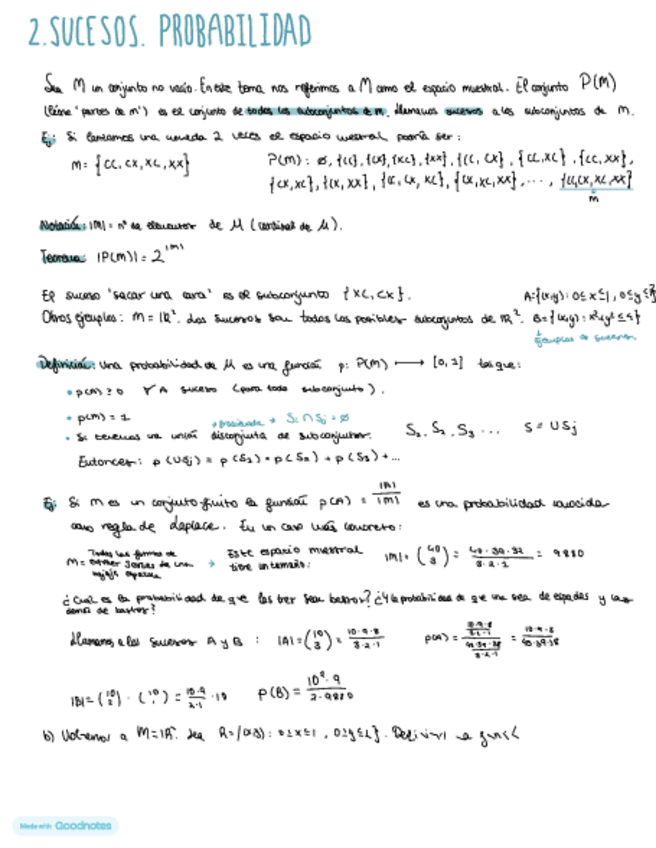 2. SUCESOS. PROBABILIDAD
Sea M un conjunto no vacío. En este tema nos referimos a M como el espacio muestral. El conjunto P(M)
(léeme "partes de m") es el conjunto de todos los subconjuntos de m. Llamamos sucesos a los subconjuntos de M.
Ej: Si lanzamos una moneda 2 veces el espacio mestral podría ser:
M = {CC, CX, XC, XX}
P(M): ∅, {CC}, {CX}, {XC}, {XX}, {CC, CX}, {CC, XC}, {CC, XX},
{CX, XC}, {CX, XX}, {CC, CX, XC}, {CX, XC, XX}, ..., {CC, CX, XC, XX}
m
Notación: |M| = nº de elementos de M (cardinal de M).
Teorema: |P(M)| = 2^|M|
El suceso "sacar una cara" es el subconjunto {XC, CX}.
A = {(x,y): 0 ≤ x ≤ 1, 0 ≤ y ≤
Otros ejemplos: M = ℝ². Los sucesos son todos los posibles subconjuntos de ℝ². B = {(x,y): x²+y² ≤
ejemplos de sucesos
Definición: Una probabilidad de M es una función p: P(M) ⟶ [0, 1] tal que:
• p(A) ≥ 0 ∀ A suceso (para todo subconjunto).
• p(M) = 1
Si ∩ Sj = ∅
• Si tenemos una unión disconjunta de subconjuntos. S₁, S₂, S₃ ... S = ∪Sj
Entonces: p(∪Sj) = p(S₁) + p(S₂) + p(S₃) + ...
Ej: Si M es un conjunto finito la función p(A) = |A| / |M| es una probabilidad conocida
como regla de Laplace. En un caso más concreto:
M = Todas las formas de
extraer 3 cartas de una
baraja española
→ Este espacio muestral
tiene un tamaño:
|M| = (40 3) = 40·39·38 / 3·2·1 = 9880
¿Cuál es la probabilidad de que las tres sean bastos? ¿Y la probabilidad de que una sea de espadas y las
demás de bastos?
Llamamos a los sucesos A y B: |A| = (10 3) = 10·9·8 / 3·2·1
p(A) = (10·9·8 / 3·2·1) / (40·39·38 / 3·2·1) = 10·9·8 / 40·39·38
|B| = (10 2) · (10 1) = 10·9 / 2·1 · 10
p(B) = 10²·9 / 2·9880
b) Volvemos a M = ℝ². Sea R = {(x,y): 0 ≤ x ≤ 1, 0 ≤ y ≤ 1}.
Made with Goodnotes